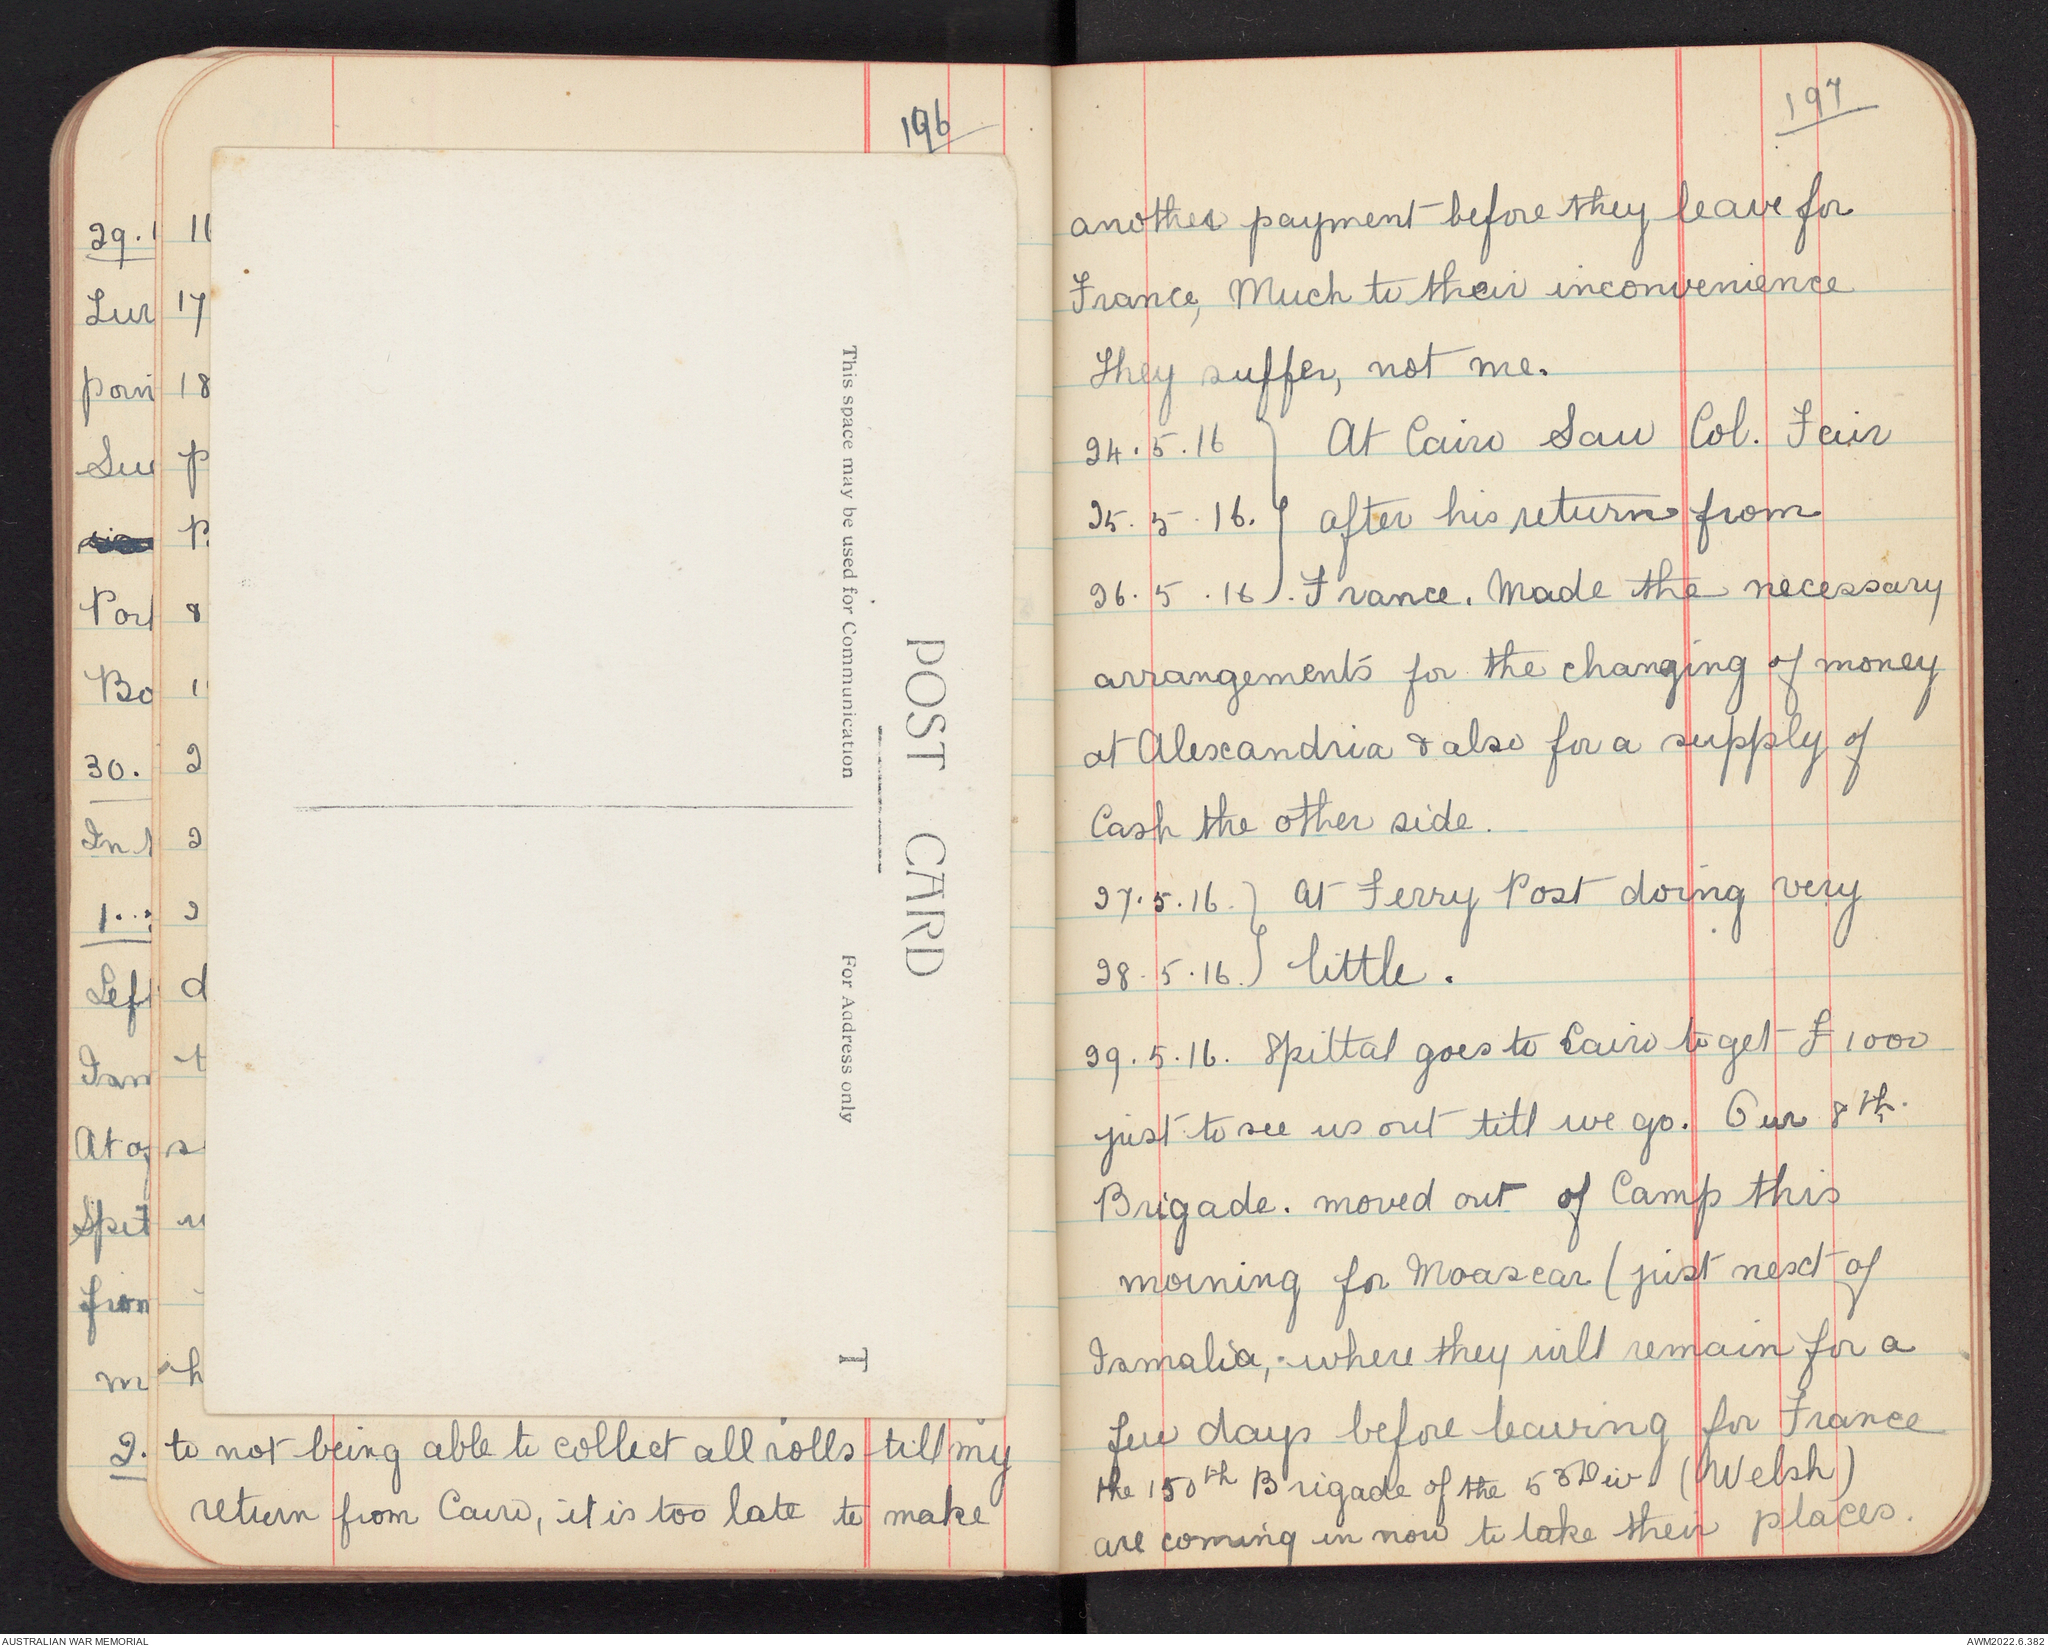 196
29.1
Lun
poin
Su
Port
Bo
30.
In
1..
Left
Ism
At
Spit
from
m
2.
11
17
18
p
P.
8
1
2
2
2
d
t
s
u
h
POST CARD
This space may be used for Communication
For Address only
T
to not being able to collect all rolls till my
return from Cairo, it is too late to make
197
another payment before they leave for
France, Much to their inconvenience
They suffer, not me.
24.5.16 } At Cairo Saw Col. Fair
25.5.16. } after his return from
26.5.16 }. France. Made the necessary
arrangements for the changing of money
at Alexandria & also for a supply of
Cash the other side.
27.5.16. } At Ferry Post doing very
28.5.16. } little.
29.5.16. Spittal goes to Cairo to get £1000
just to see us out till we go. Our 8th.
Brigade. moved out of Camp this
morning for Moascar (just next of
Ismalia, where they will remain for a
few days before leaving for France
the 150th Brigade of the 53Div. (Welsh)
are coming in now to take their places.
AUSTRALIAN WAR MEMORIAL
AWM2022.6.382